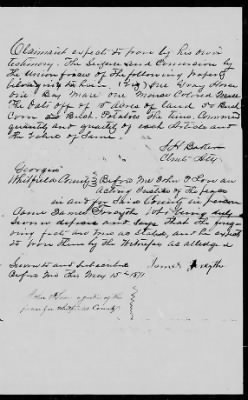 Claimant expects to prove by his own
testimony. The Seizure and Conversion by
the Union forces of the following property
belonging to him. One Gray Horse
one Bay Mare one Mouse Colored Mule
The Oats off of acres of land Bush
Corn Bush. Potatoes The time.
quantity and quality of each Article and
the Value of Same.
Atty.
Georgia
Whitfield County Before Me John an
acting Justice of the peace
in and for Said County in person
Came James Forsyth who being duly
Sworn deposes and Says that the forego
ing facts are true as Stated, and he expects
to prove them by the Witnesses as alledged
Sworn to and Subscribed James Forsyth
before me this May 15th 1871
John a justice of the
peace for Whitfield County